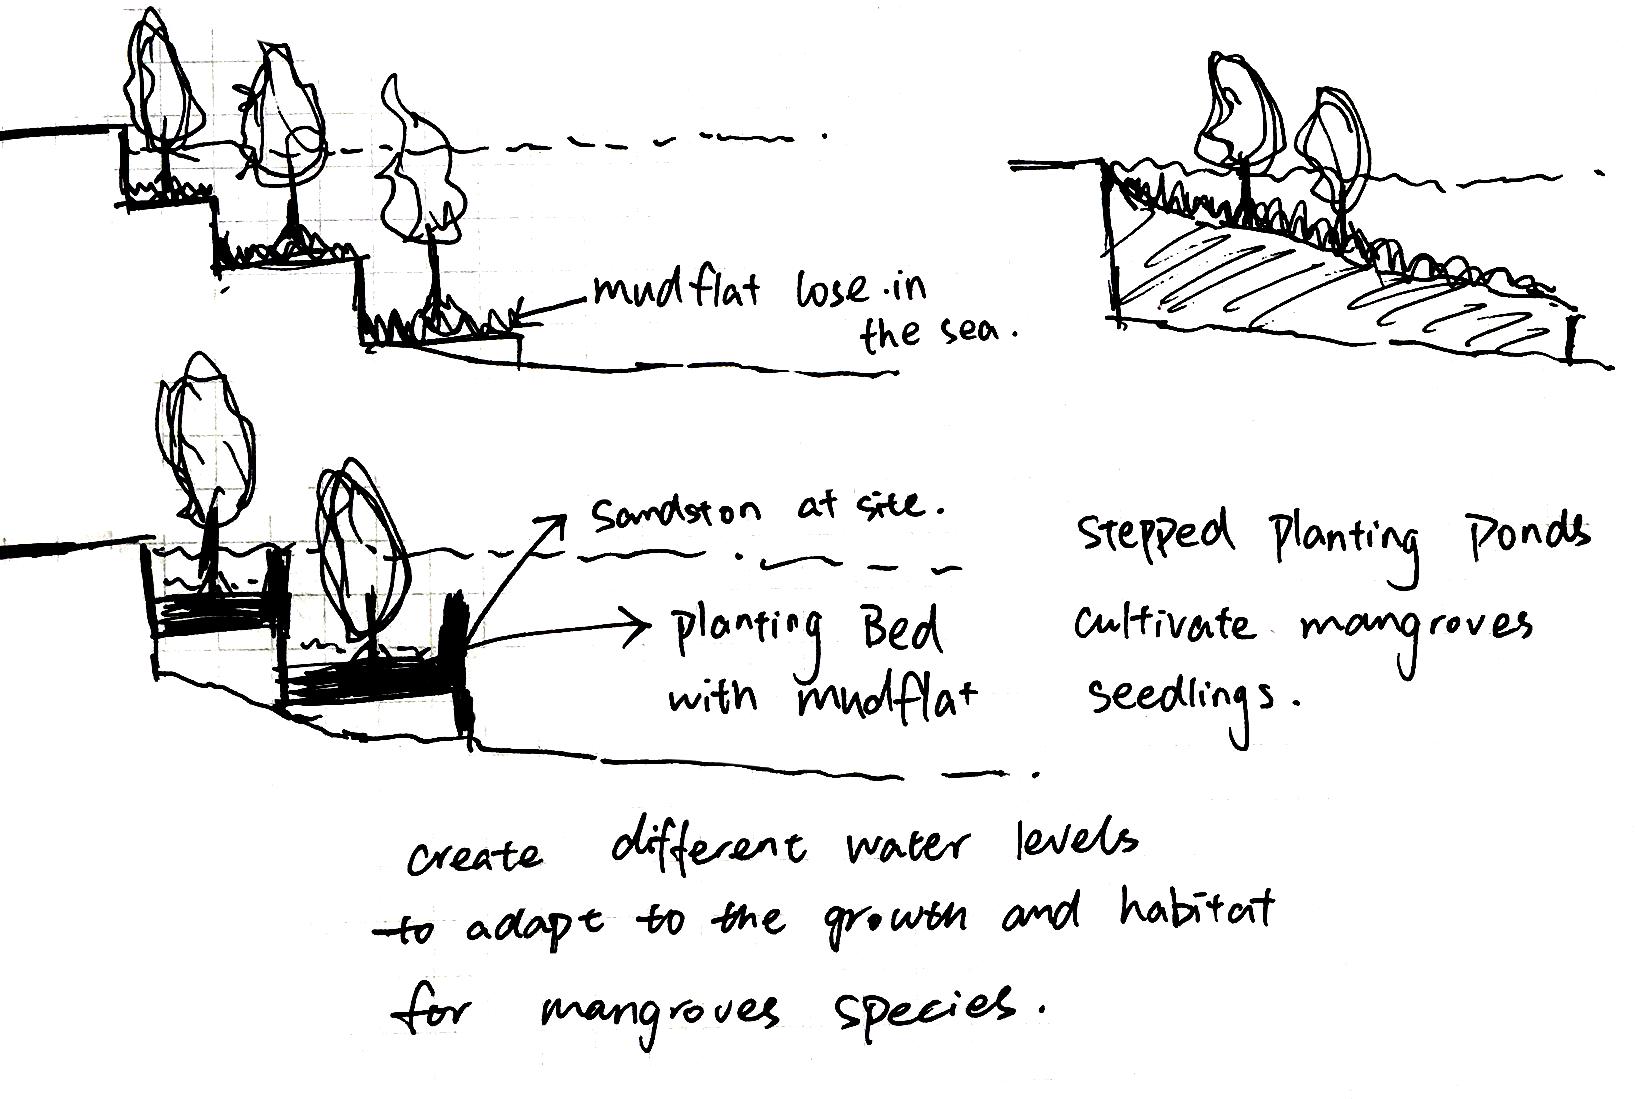 mudflat lose in
the sea.
Sandston at site.
planting Bed
with mudflat
Stepped planting ponds
cultivate mangroves
seedlings.
create different water levels
to adapt to the growth and habitat
for mangroves species.